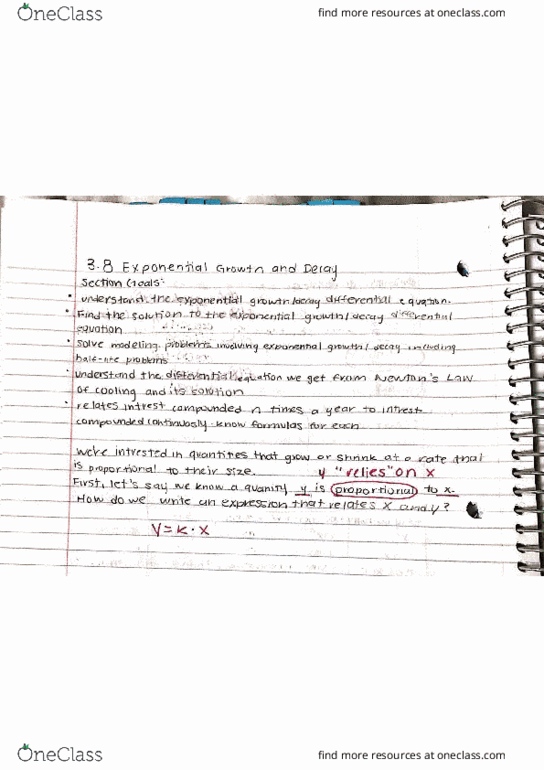 OneClass
find more resources at oneclass.com
3.8 Exponential Growth and Decay
Section Goals:
• understand the exponential growth/decay differential equation.
• Find the solution to the exponential growth/decay differential
equation
• Solve modeling problems involving exponential growth/decay including
half-life problems
• understand the differential equation we get from Newton's Law
of cooling and its solution
• relates intrest compounded n times a year to intrest
compounded continuously. know formulas for each
We're intrested in quantities that grow or shrink at a rate that
is proportional to their size.
y "relies" on x
First, let's say we know a quanity y is proportional to x.
How do we write an expression that relates x and y?
y=k·x
OneClass
find more resources at oneclass.com